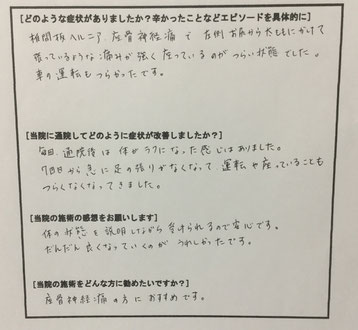 [どのような症状がありましたか？辛かったことなどエピソードを具体的に]
椎間板ヘルニア、座骨神経痛で左側お尻から太ももにかけて
張っているような痛みが強く座っているのがつらい状態でした。
車の運転もつらかったです。
[当院に通院してどのように症状が改善しましたか？]
毎回、通院後は体がラクになった感じはありました。
7回目から急に足の張りがなくなって運転や座っていることも
つらくなくなってきました。
[当院の施術の感想をお願いします]
体の状態を説明しながら受けられるので安心です。
だんだん良くなっていくのがうれしかったです。
[当院の施術をどんな方に勧めたいですか？]
座骨神経痛の方におすすめです。